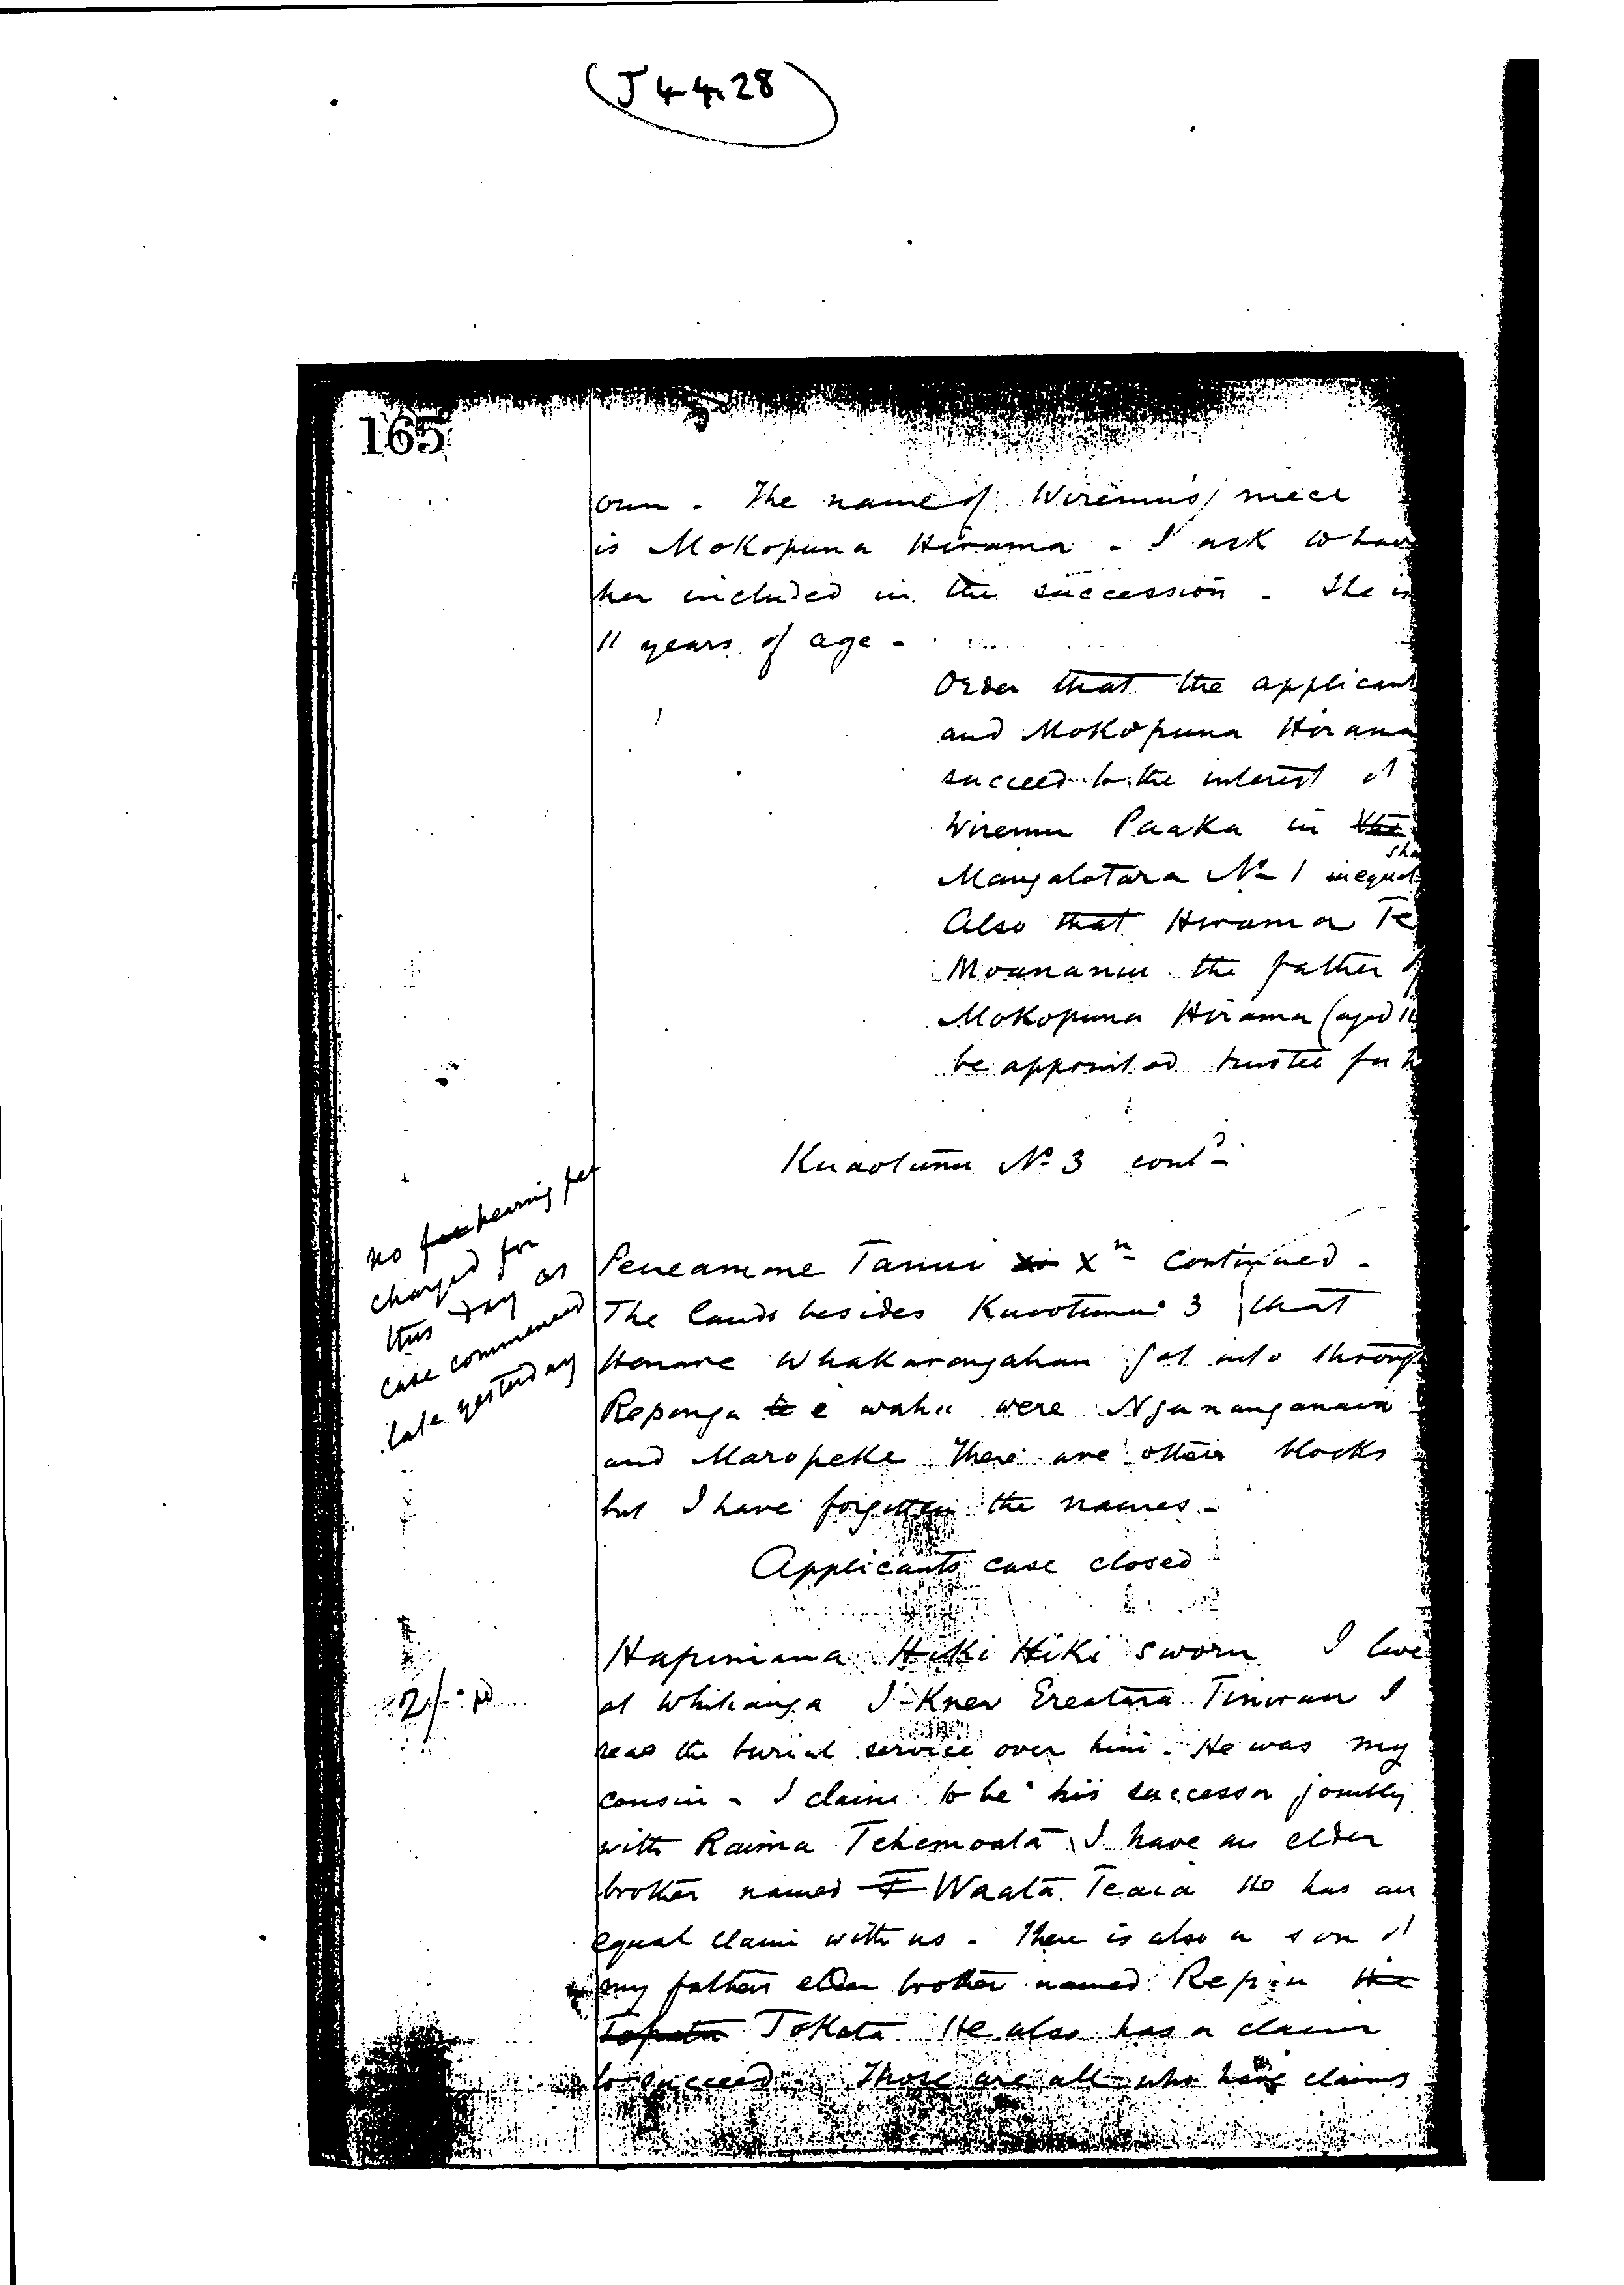 (J 44.28)
165
own - The name of Wiremu's niece
is Mokopuna Hirama - I ask to have
her included in the succession - She is
11 years of age -
Order that the applicant
and Mokopuna Hirama
succeed to the interest of
Wiremu Paaka in the
sha
Mangatotara No 1 in equal
Also that Hirama Te
Moananui the father of
Mokopuna Hirama (aged 11
be appointed trustee for h
Kuaotunu No 3 contd
no fee hearing fee
charged for
this day as
case commenced
late yesterday
Peneamine Tanui Xn continued -
The lands besides Kuaotunu 3 that
Henare Whakarongahau got into through
Reponga te e wahu were
and Maropeke There are other blocks
but I have forgotten the names -
Applicants case closed
2/- pd
Hapimana Hiki Hiki sworn I live
at Whitianga I knew Ereatara Tinirau I
read the burial service over him. He was my
cousin - I claim to be his successor jointly
with Raima Tehemoata I have an elder
brother named T Waata Teaia He has an
equal claim with us - There is also a son of
my fathers elder brother named Repiu the
Topata Tokata He also has a claim
to succeed. Those are all who have claims